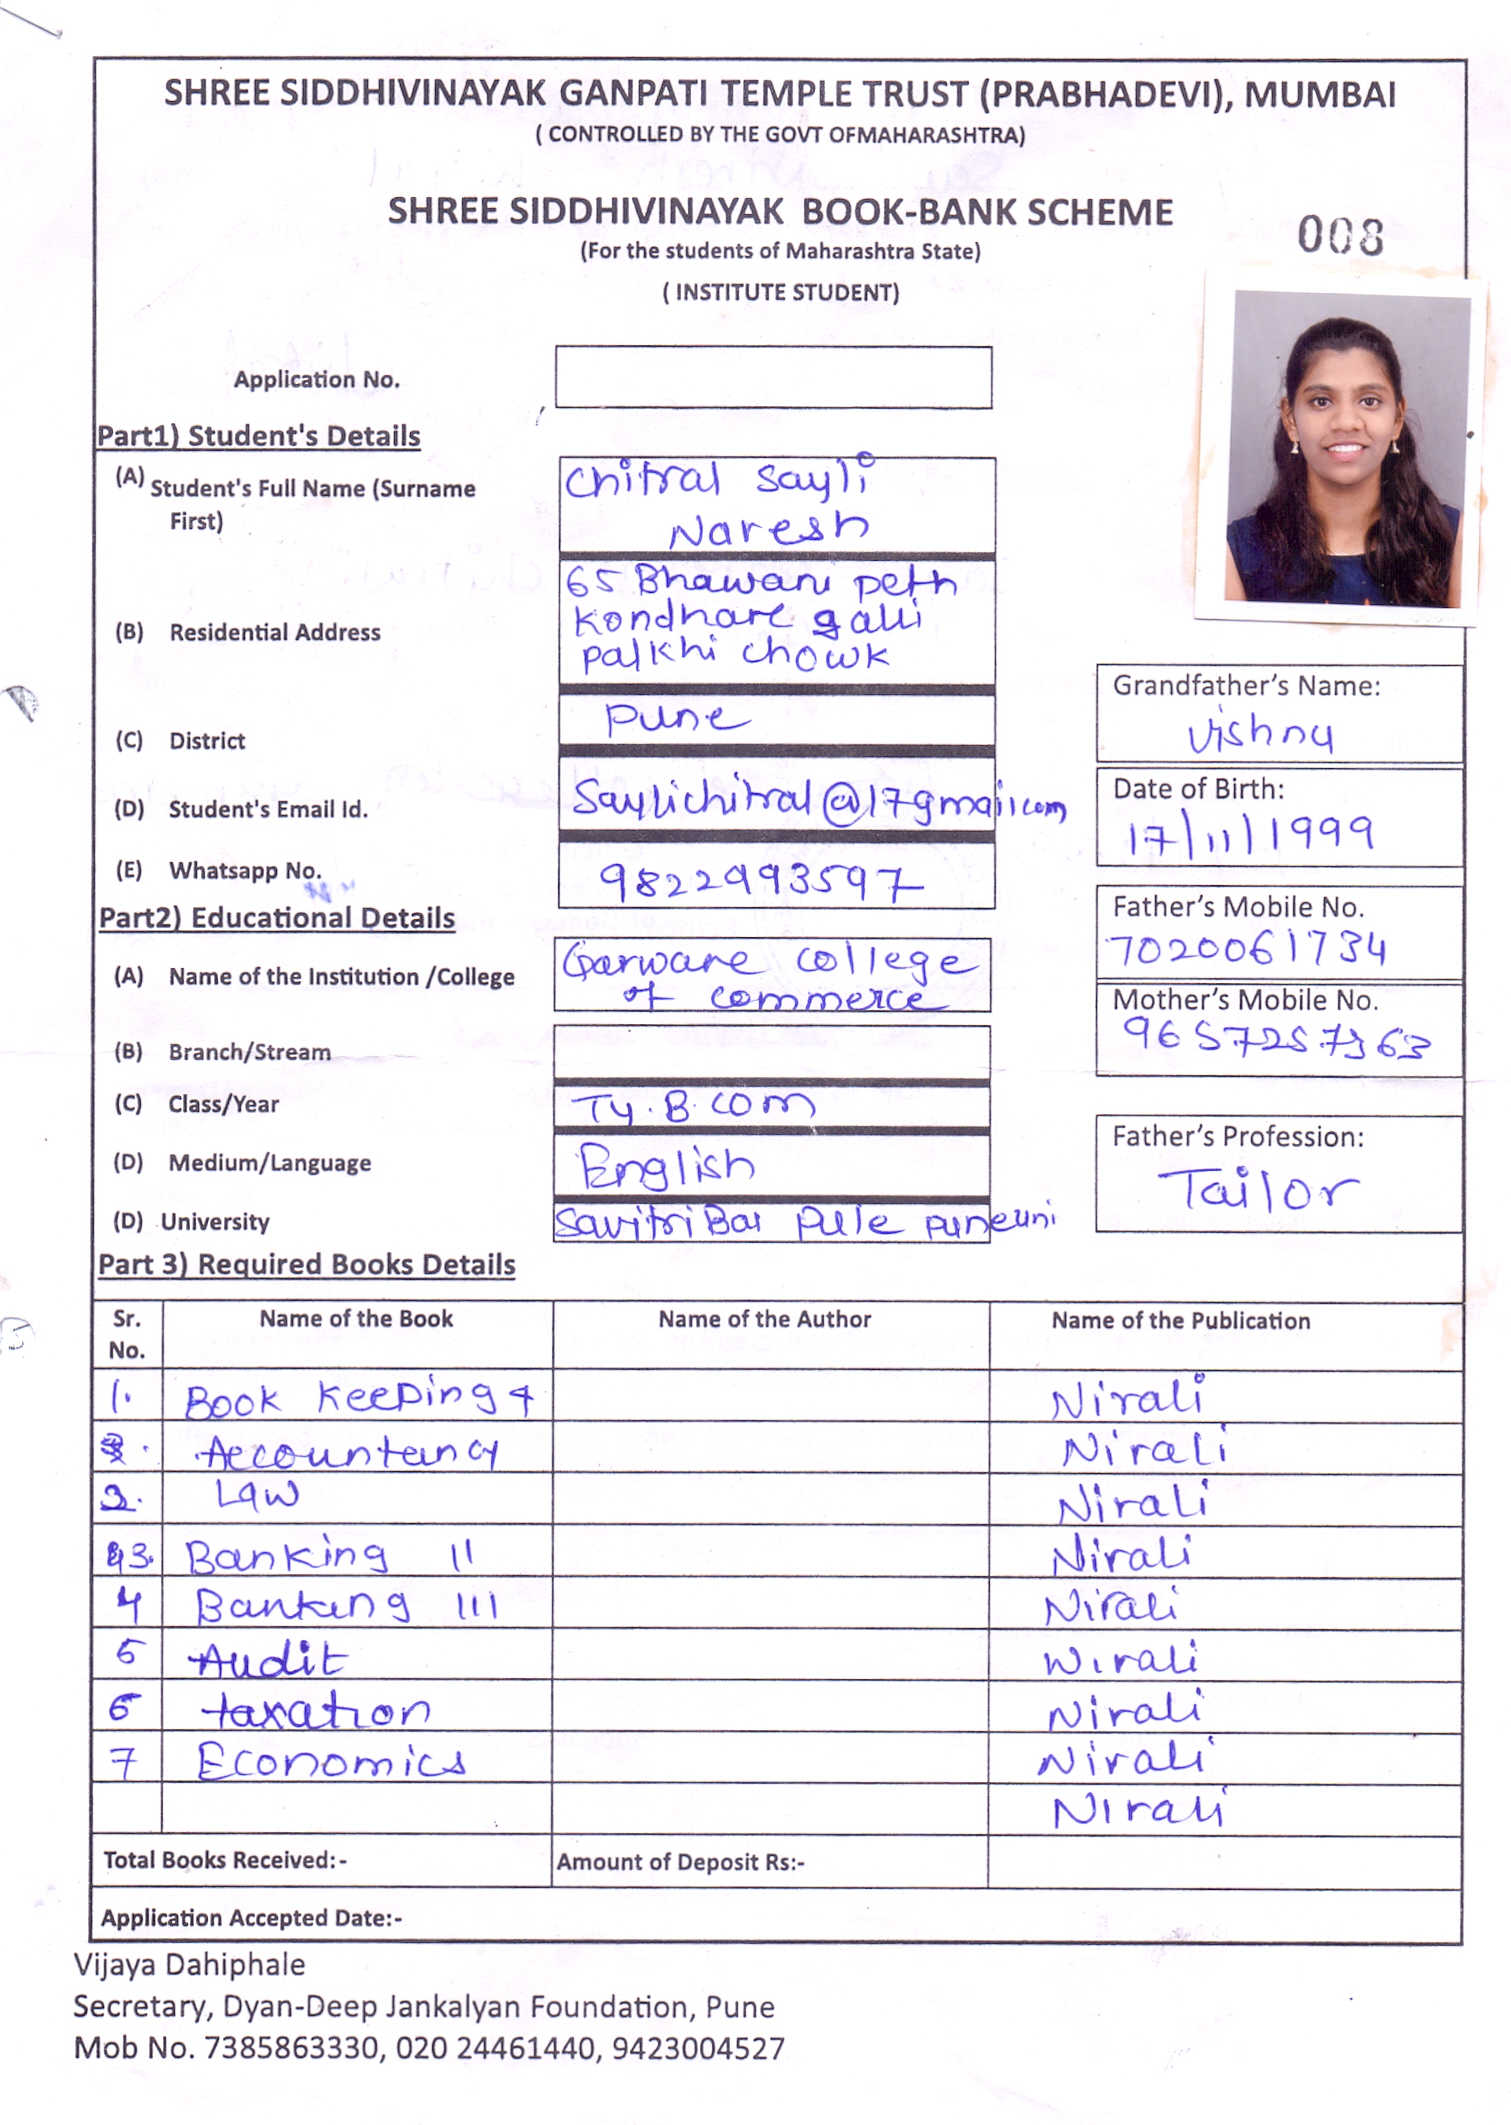 SHREE SIDDHIVINAYAK GANPATI TEMPLE TRUST (PRABHADEVI), MUMBAI
( CONTROLLED BY THE GOVT OFMAHARASHTRA)
SHREE SIDDHIVINAYAK BOOK-BANK SCHEME
008
(For the students of Maharashtra State)
( INSTITUTE STUDENT)
Application No.
Part1) Student's Details
(A) Student's Full Name (Surname First)
Chitral Sayli
Naresh
(B) Residential Address
65 Bhawani peth
Kondhare galli
palkhi chowk
Grandfather's Name:
Vishnu
(C) District
Pune
Date of Birth:
17/11/1999
(D) Student's Email Id.
Saylichitral@17gmailcom
(E) Whatsapp No.
9822993597
Father's Mobile No.
7020061734
Part2) Educational Details
(A) Name of the Institution /College
Garware college
of commerce
Mother's Mobile No.
(B) Branch/Stream
(C) Class/Year
Ty.B.com
Father's Profession:
Tailor
(D) Medium/Language
English
(D) University
Savitri Bai Pule pune uni
Part 3) Required Books Details
Sr. No. Name of the Book Name of the Author Name of the Publication
1. Book Keeping & Nirali
Accountancy Nirali
2. Law Nirali
3. Banking II Nirali
4 Banking III Nirali
5 Audit Nirali
6 taxation Nirali
7 Economics Nirali
Nirali
Total Books Received:- Amount of Deposit Rs:-
Application Accepted Date:-
Vijaya Dahiphale
Secretary, Dyan-Deep Jankalyan Foundation, Pune
Mob No. 7385863330, 020 24461440, 9423004527